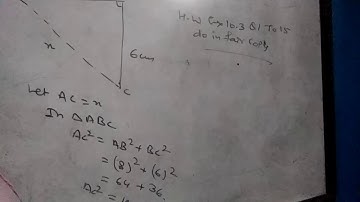 H.W Exe 10.3 Q1 To 15
do in fair copy
x
6cm
C
Let AC = x
In ΔABC
AC² = AB² + BC²
= (8)² + (6)²
= 64 + 36.
AC² =